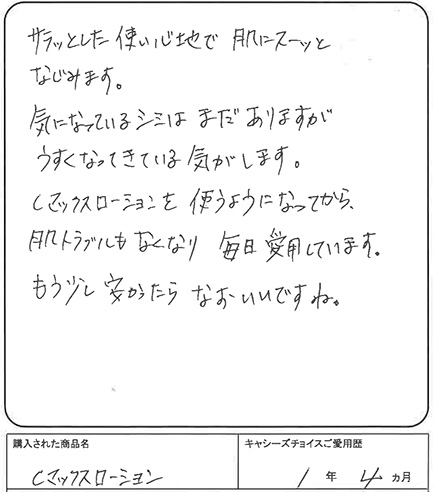 サラッとした使い心地で 肌にスーッと
なじみます。
気になっているシミは まだありますが
うすくなってきている気がします。
Cマックスローションを 使うようになってから、
肌トラブルも なくなり 毎日愛用しています。
もう少し 安かったら なおいいですね。
購入された商品名
キャシーズチョイスご愛用歴
Cマックスローション
1 年 4 カ月